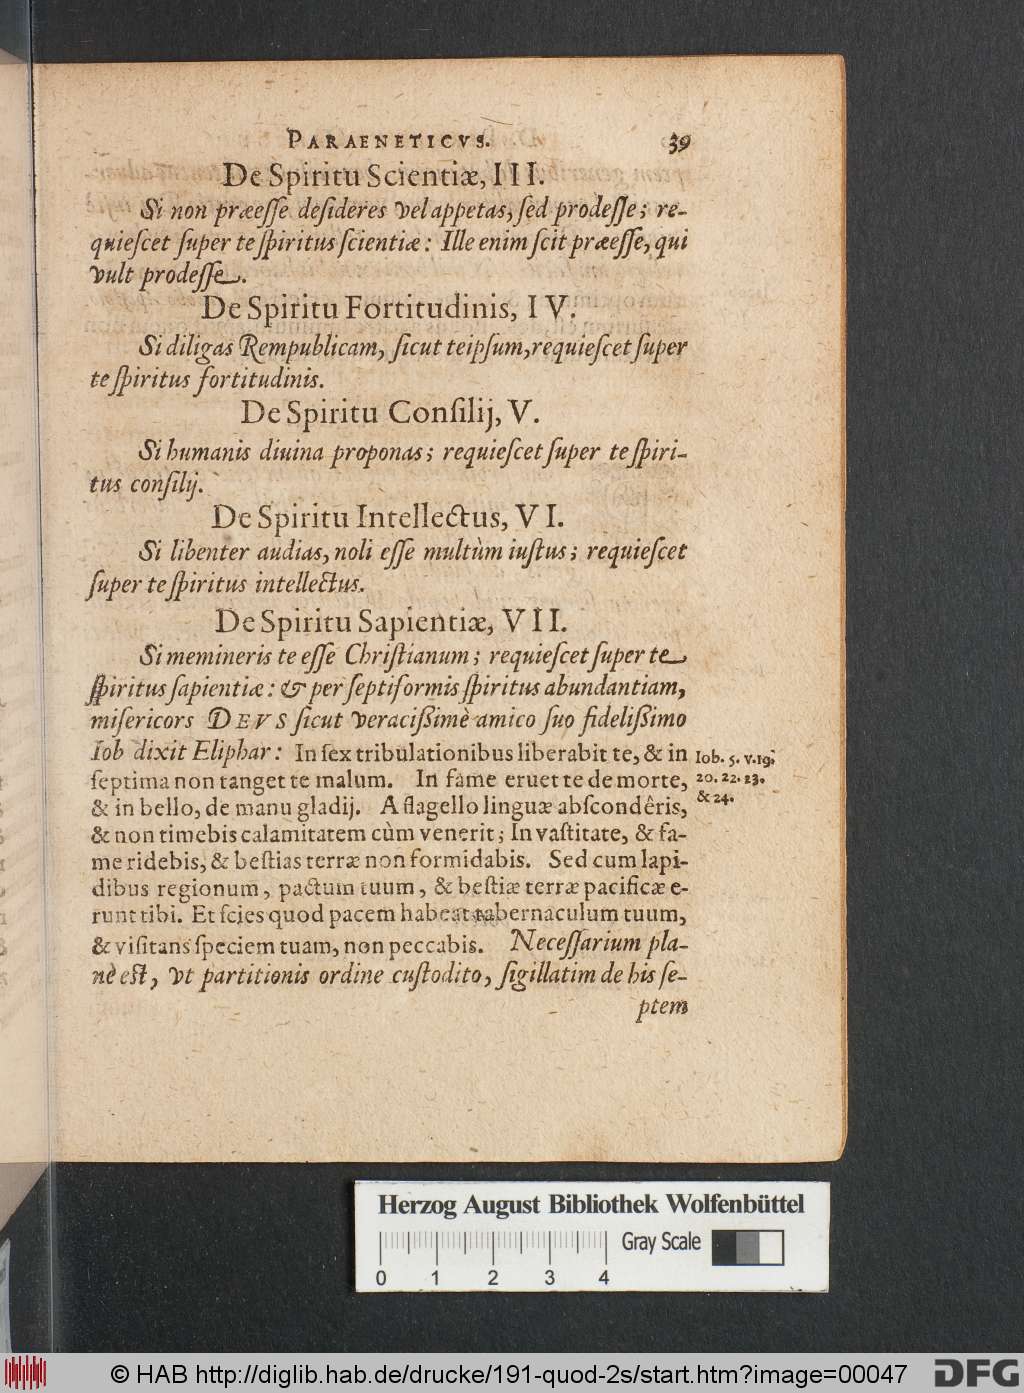 PARAENETICVS. 39
De Spiritu Scientiæ, III.
Si non præeſſe deſideres vel appetas, ſed prodeſſe; re-
quieſcet ſuper te ſpiritus ſcientiæ: Ille enim ſcit præeſſe, qui
vult prodeſſe.
De Spiritu Fortitudinis, IV.
Si diligas Rempublicam, ſicut teipſum, requieſcet ſuper
te ſpiritus fortitudinis.
De Spiritu Conſilij, V.
Si humanis diuina proponas; requieſcet ſuper te ſpiri-
tus conſilij.
De Spiritu Intellectus, VI.
Si libenter audias, noli eſſe multùm iuſtus; requieſcet
ſuper te ſpiritus intellectus.
De Spiritu Sapientiæ, VII.
Si memineris te eſſe Chriſtianum; requieſcet ſuper te
ſpiritus ſapientiæ: & per ſeptiformis ſpiritus abundantiam,
miſericors DEVS ſicut veraciſſimè amico ſuo fideliſſimo
Iob dixit Eliphar: In ſex tribulationibus liberabit te, & in
ſeptima non tanget te malum. In fame eruet te de morte,
& in bello, de manu gladij. A flagello linguæ abſcondêris,
& non timebis calamitatem cùm venerit; In vaſtitate, & fa-
me ridebis, & beſtias terræ non formidabis. Sed cum lapi-
dibus regionum, pactum tuum, & beſtiæ terræ pacificæ e-
runt tibi. Et ſcies quod pacem habeat tabernaculum tuum,
& viſitans ſpeciem tuam, non peccabis. Neceſſarium pla-
nè eſt, vt partitionis ordine cuſtodito, ſigillatim de his ſe-
ptem
Iob. 5. v. 19.
20. 22. 23.
& 24.
Herzog August Bibliothek Wolfenbüttel
Gray Scale
0 1 2 3 4
© HAB http://diglib.hab.de/drucke/191-quod-2s/start.htm?image=00047 DFG